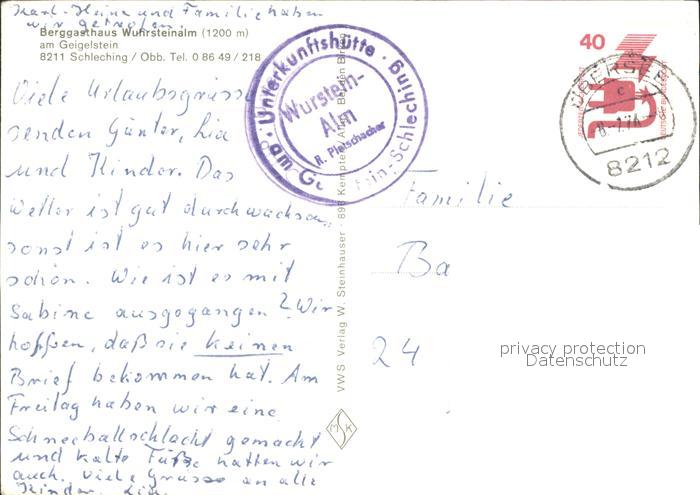 Karl-Heinz und Familie haben
wir getroffen.
Berggasthaus Wuhrsteinalm (1200 m)
am Geigelstein
8211 Schleching / Obb. Tel. 0 86 49 / 218
Viele Urlaubsgrüsse
senden Günter, Lia
und Kinder. Das
Wetter ist gut durchwachsen,
sonst ist es hier sehr
schön. Wie ist es mit
Sabine ausgegangen? Wir
hoffen, daß sie keinen
Brief bekommen hat. Am
Freitag haben wir eine
Schneeballschlacht gemacht
und kalte Füße hatten wir
auch. Viele Grüsse an alle
Kinder. Lia.
Unterkunftshütte
Wurstein-
Alm
R. Pletschacher
am Schleching
VWS Verlag W. Steinhauser · 896 Kempten
MSK
40
8.7.74
8212
Familie
Ba
24
privacy protection
Datenschutz